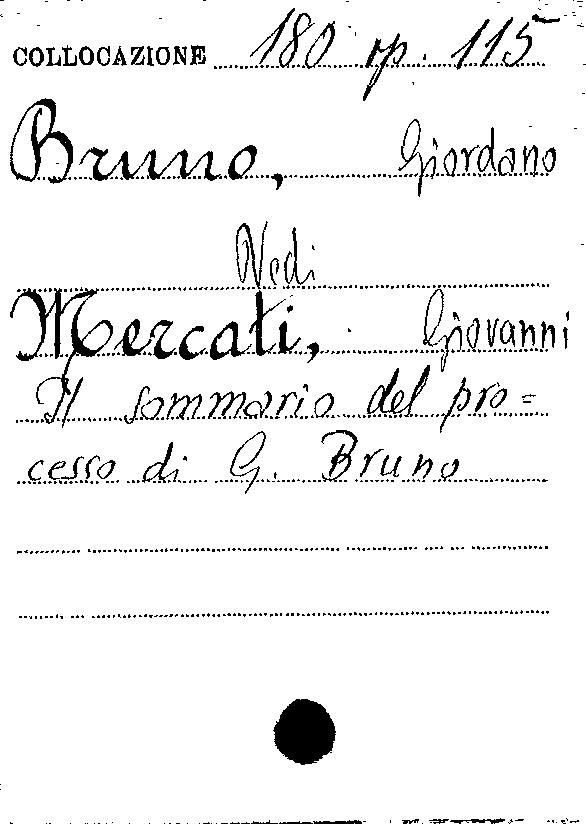 COLLOCAZIONE 180 op. 115
Bruno, Giordano
Vedi
Mercati, Giovanni
Il sommario del pro=
cesso di G. Bruno